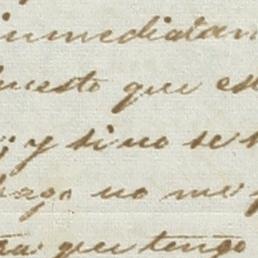 inmediatam
puesto que es
; y sino se
hago no me
que tengo